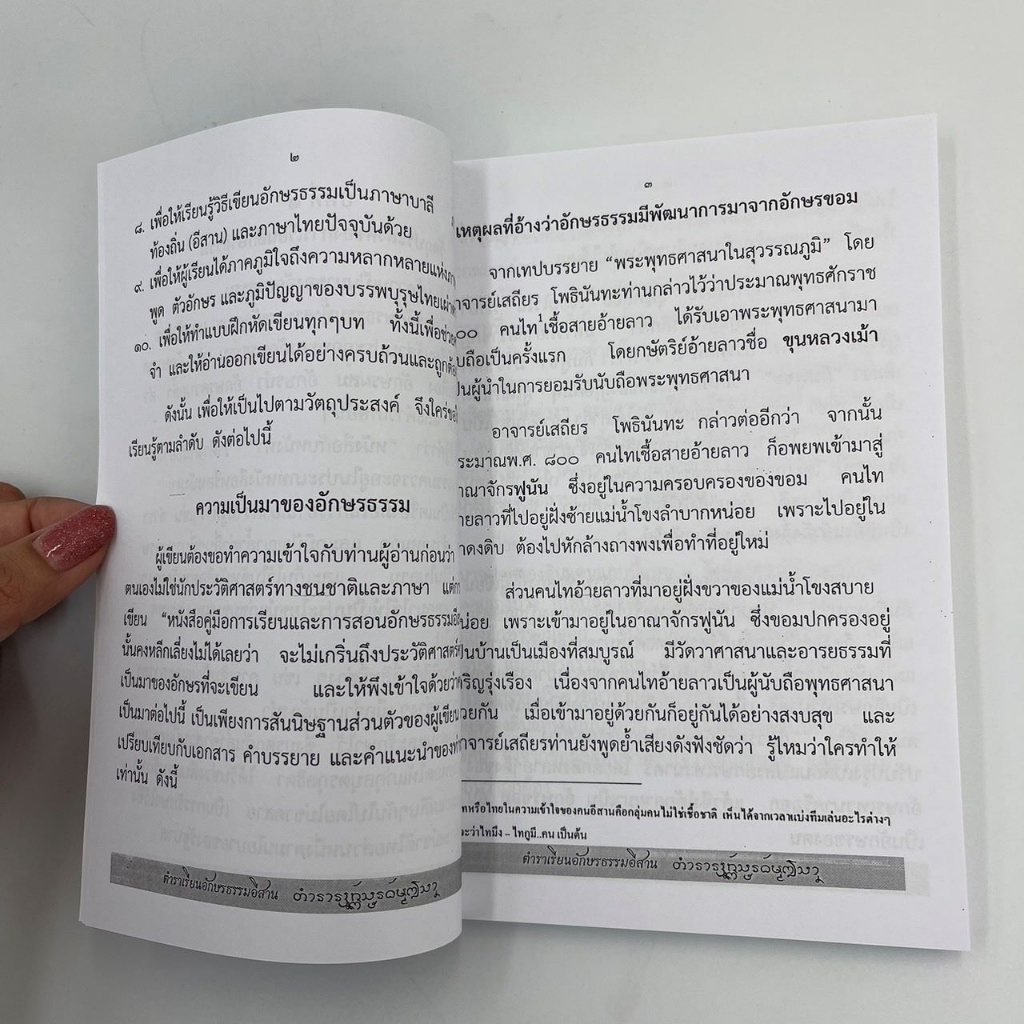 ๒
๘. เพื่อให้เรียนรู้วิธีเขียนอักษรธรรมเป็นภาษาบาลี
ท้องถิ่น (อีสาน) และภาษาไทยปัจจุบันด้วย
๙. เพื่อให้ผู้เรียนได้ภาคภูมิใจถึงความหลากหลายแห่ง
พูด ตัวอักษร และภูมิปัญญาของบรรพบุรุษไทย
๑๐. เพื่อให้ทำแบบฝึกหัดเขียนทุกๆบท ทั้งนี้เพื่อ
จำ และให้อ่านออกเขียนได้อย่างครบถ้วนและ
ดังนั้น เพื่อให้เป็นไปตามวัตถุประสงค์ จึงใคร่
เรียนรู้ตามลำดับ ดังต่อไปนี้
ความเป็นมาของอักษรธรรม
ผู้เขียนต้องขอทำความเข้าใจกับท่านผู้อ่านก่อนว่า
ตนเองไม่ใช่นักประวัติศาสตร์ทางชนชาติและภาษา
เขียน “หนังสือคู่มือการเรียนและการสอนอักษรธรรม
นั้นคงหลีกเลี่ยงไม่ได้เลยว่า จะไม่เกริ่นถึงประวัติศาสตร์
เป็นมาของอักษรที่จะเขียน และให้พึงเข้าใจด้วยว่า
เป็นมาต่อไปนี้ เป็นเพียงการสันนิษฐานส่วนตัวของผู้เขียน
เปรียบเทียบกับเอกสาร คำบรรยาย และคำแนะนำของ
เท่านั้น ดังนี้
ตำราเรียนอักษรธรรมอีสาน
๓
เหตุผลที่อ้างว่าอักษรธรรมมีพัฒนาการมาจากอักษรขอม
จากเทปบรรยาย “พระพุทธศาสนาในสุวรรณภูมิ” โดย
าจารย์เสถียร โพธินันทะท่านกล่าวไว้ว่าประมาณพุทธศักราช
๐๐ คนไท¹เชื้อสายอ้ายลาว ได้รับเอาพระพุทธศาสนามา
ับถือเป็นครั้งแรก โดยกษัตริย์อ้ายลาวชื่อ ขุนหลวงเม้า
ป็นผู้นำในการยอมรับนับถือพระพุทธศาสนา
อาจารย์เสถียร โพธินันทะ กล่าวต่ออีกว่า จากนั้น
ระมาณพ.ศ. ๘๐๐ คนไทเชื้อสายอ้ายลาว ก็อพยพเข้ามาสู่
าณาจักรฟูนัน ซึ่งอยู่ในความครอบครองของขอม คนไท
ายลาวที่ไปอยู่ฝั่งซ้ายแม่น้ำโขงลำบากหน่อย เพราะไปอยู่ใน
าดงดิบ ต้องไปหักล้างถางพงเพื่อทำที่อยู่ใหม่
ส่วนคนไทอ้ายลาวที่มาอยู่ฝั่งขวาของแม่น้ำโขงสบาย
น่อย เพราะเข้ามาอยู่ในอาณาจักรฟูนัน ซึ่งขอมปกครองอยู่
ป็นบ้านเป็นเมืองที่สมบูรณ์ มีวัดวาศาสนาและอารยธรรมที่
ริญรุ่งเรือง เนื่องจากคนไทอ้ายลาวเป็นผู้นับถือพุทธศาสนา
วยกัน เมื่อเข้ามาอยู่ด้วยกันก็อยู่กันได้อย่างสงบสุข และ
าจารย์เสถียรท่านยังพูดย้ำเสียงดังฟังชัดว่า รู้ไหมว่าใครทำให้
ทหรือไทยในความเข้าใจของคนอีสานคือกลุ่มคน ไม่ใช่เชื้อชาติ เห็นได้จากเวลาแบ่งทีมเล่นอะไรต่างๆ
ะว่าไทมึง – ไทกูมี..คน เป็นต้น
ตำราเรียนอักษรธรรมอีสาน